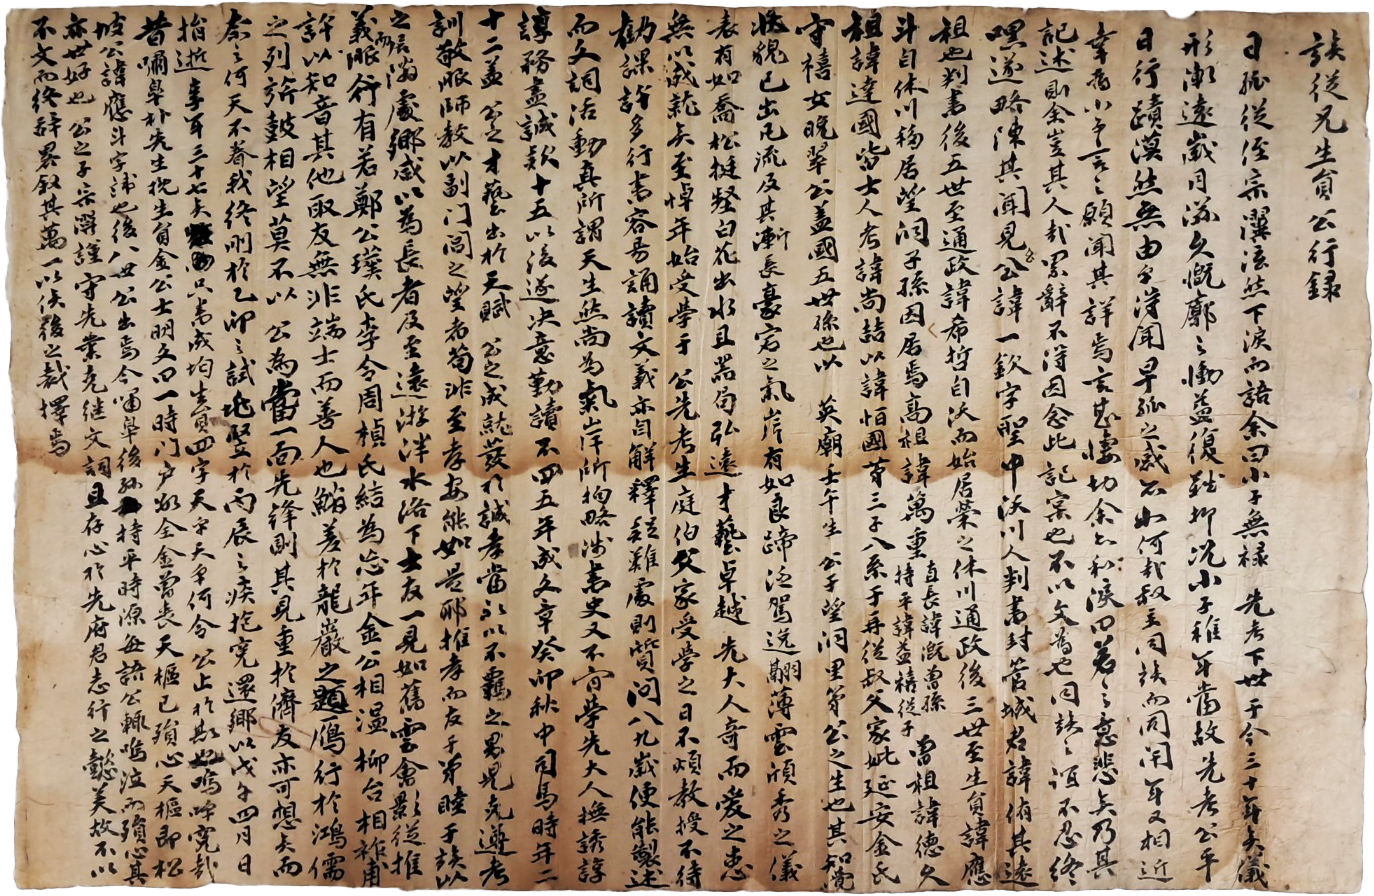 族從兄生負公行録
日孤從侄宗潩泫然下淚而語余曰小子無禄 先考下世于今三十年矣儀
形漸遠歲月滋久慨廓之慟益復難抑况小子稚年當故先考公平
日行蹟漠然無由乎得聞早孤之感不如何哉叔主同族而同閈年又相近
幸爲小子言之願聞其詳焉言甚悽切余亦和淚曰若之意悲矣乃其
記述則余豈其人哉累辭不淂因念此記宲也不以文爲也同族之誼不忍終
嘿遂略陳其聞見公諱一欽字聖中沃川人判書封管城君諱侑其遠
祖也判書後五世至通政諱希哲自沃而始居榮之休川通政後三世至生負諱應
斗自休川移居望洞子孫因居焉高祖諱萬重 直長諱漑曽孫 持平諱益禧從子 曽祖諱德久
祖諱達國皆士人考諱尚喆以諱怕國苐三子入系于再從叔父家妣延安金氏
守禧女晚翠公盖國五世孫也以 英廟壬午生 公于望洞里第公之生也其知覺
狀貌已出凡流及其漸長豪宕之氣岸有如良蹄泛駕逸翮薄雲頎秀之儀
表有如喬松挺壑白花出水且器局弘遠才藝卓越 先大人奇而愛之恚
無以成就矣至悼年始受學于 公先考生庭伯父家受學之日不煩教授不待
勸課許多行書容易誦讀文義亦自觧釋疑難處則質問八九歲便能製述
而文詞活動真所謂天生然尚爲氣岸所拘略涉書史又不肯學先大人撫誘諄
諄務盡誠欵十五以後遂决意勤讀不四五年成文章癸卯秋中司馬時年二
十二盖 公之才藝出於天賦 公之成就茇於誠孝當諉以不羈之畧晃克遵考
訓敬服師教以副门閭之望者苟非至孝安能如是耶推孝而友于弟睦于族以
之居而滿處鄉咸以爲長者及至遠游泮水洛下士友一見如舊雲會影從推
義服行有若鄭公璞氏李令周楨氏結爲忘年金公相温柳台相祚甫
許以知音其他取友無非端士而善人也鯂差於龍巖之題鴈行於鴻儒
之列旂鼓相望莫不以 公為當一面先鋒則其見重於儕友亦可想矣而
奈之何天不眷我終刖於乙卯之試兆竪於丙辰之疾抱寃還鄉以戊午四月日
捐逝享年三十七矣只書成均生負四字天乎天乎何令 公止於斯也嗚呼寃哉
昔嘯皐朴先生挽生負金公士明文曰一時门户欲全金嘗丧天樞已殞心天樞即松
坡公諱應斗字諱也後八世公出焉今嘯皐後孫持平時源每語公輒嗚泣而殞心其
亦世好也 公之子宗潩謹守先業克继文詞且存心於先府君志行之懿美故不以
不文而終辞畧叙其萬一以俟後之裁擇焉